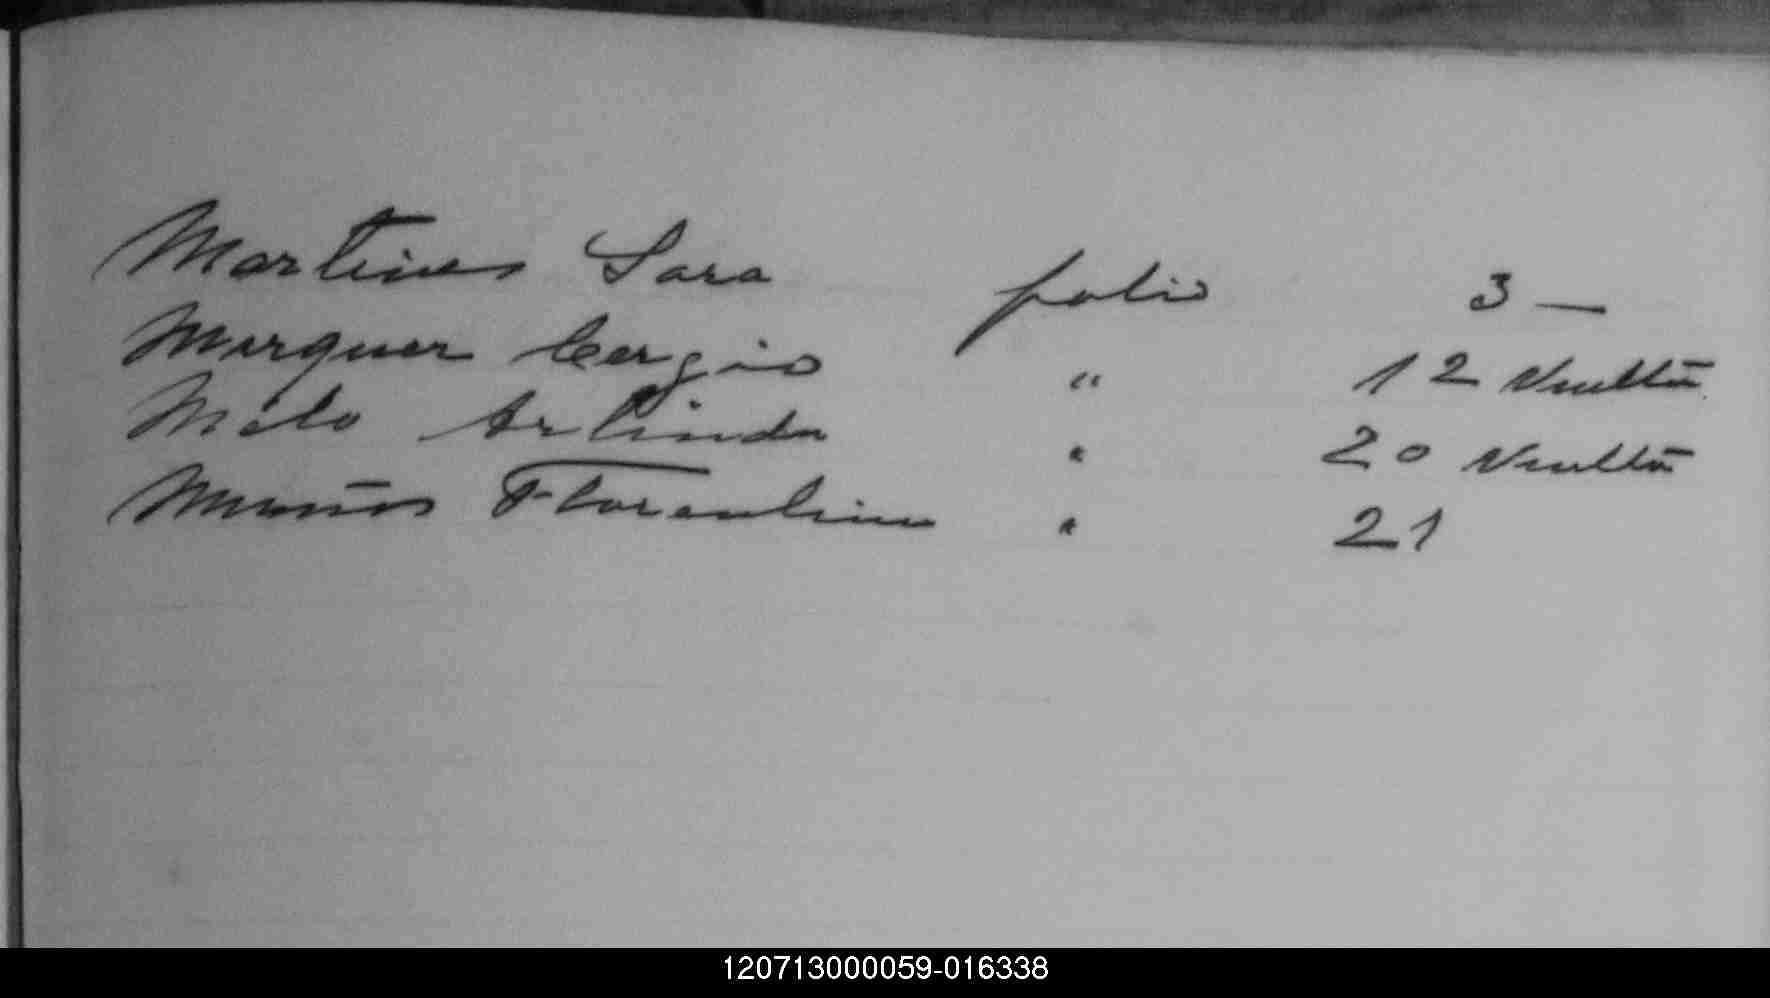 Martines Sara folio 3 —
Marquer Cergio " 12 Vuelta
Melo Arlinda " 20 Vuelta
Muños Florentina " 21
120713000059-016338